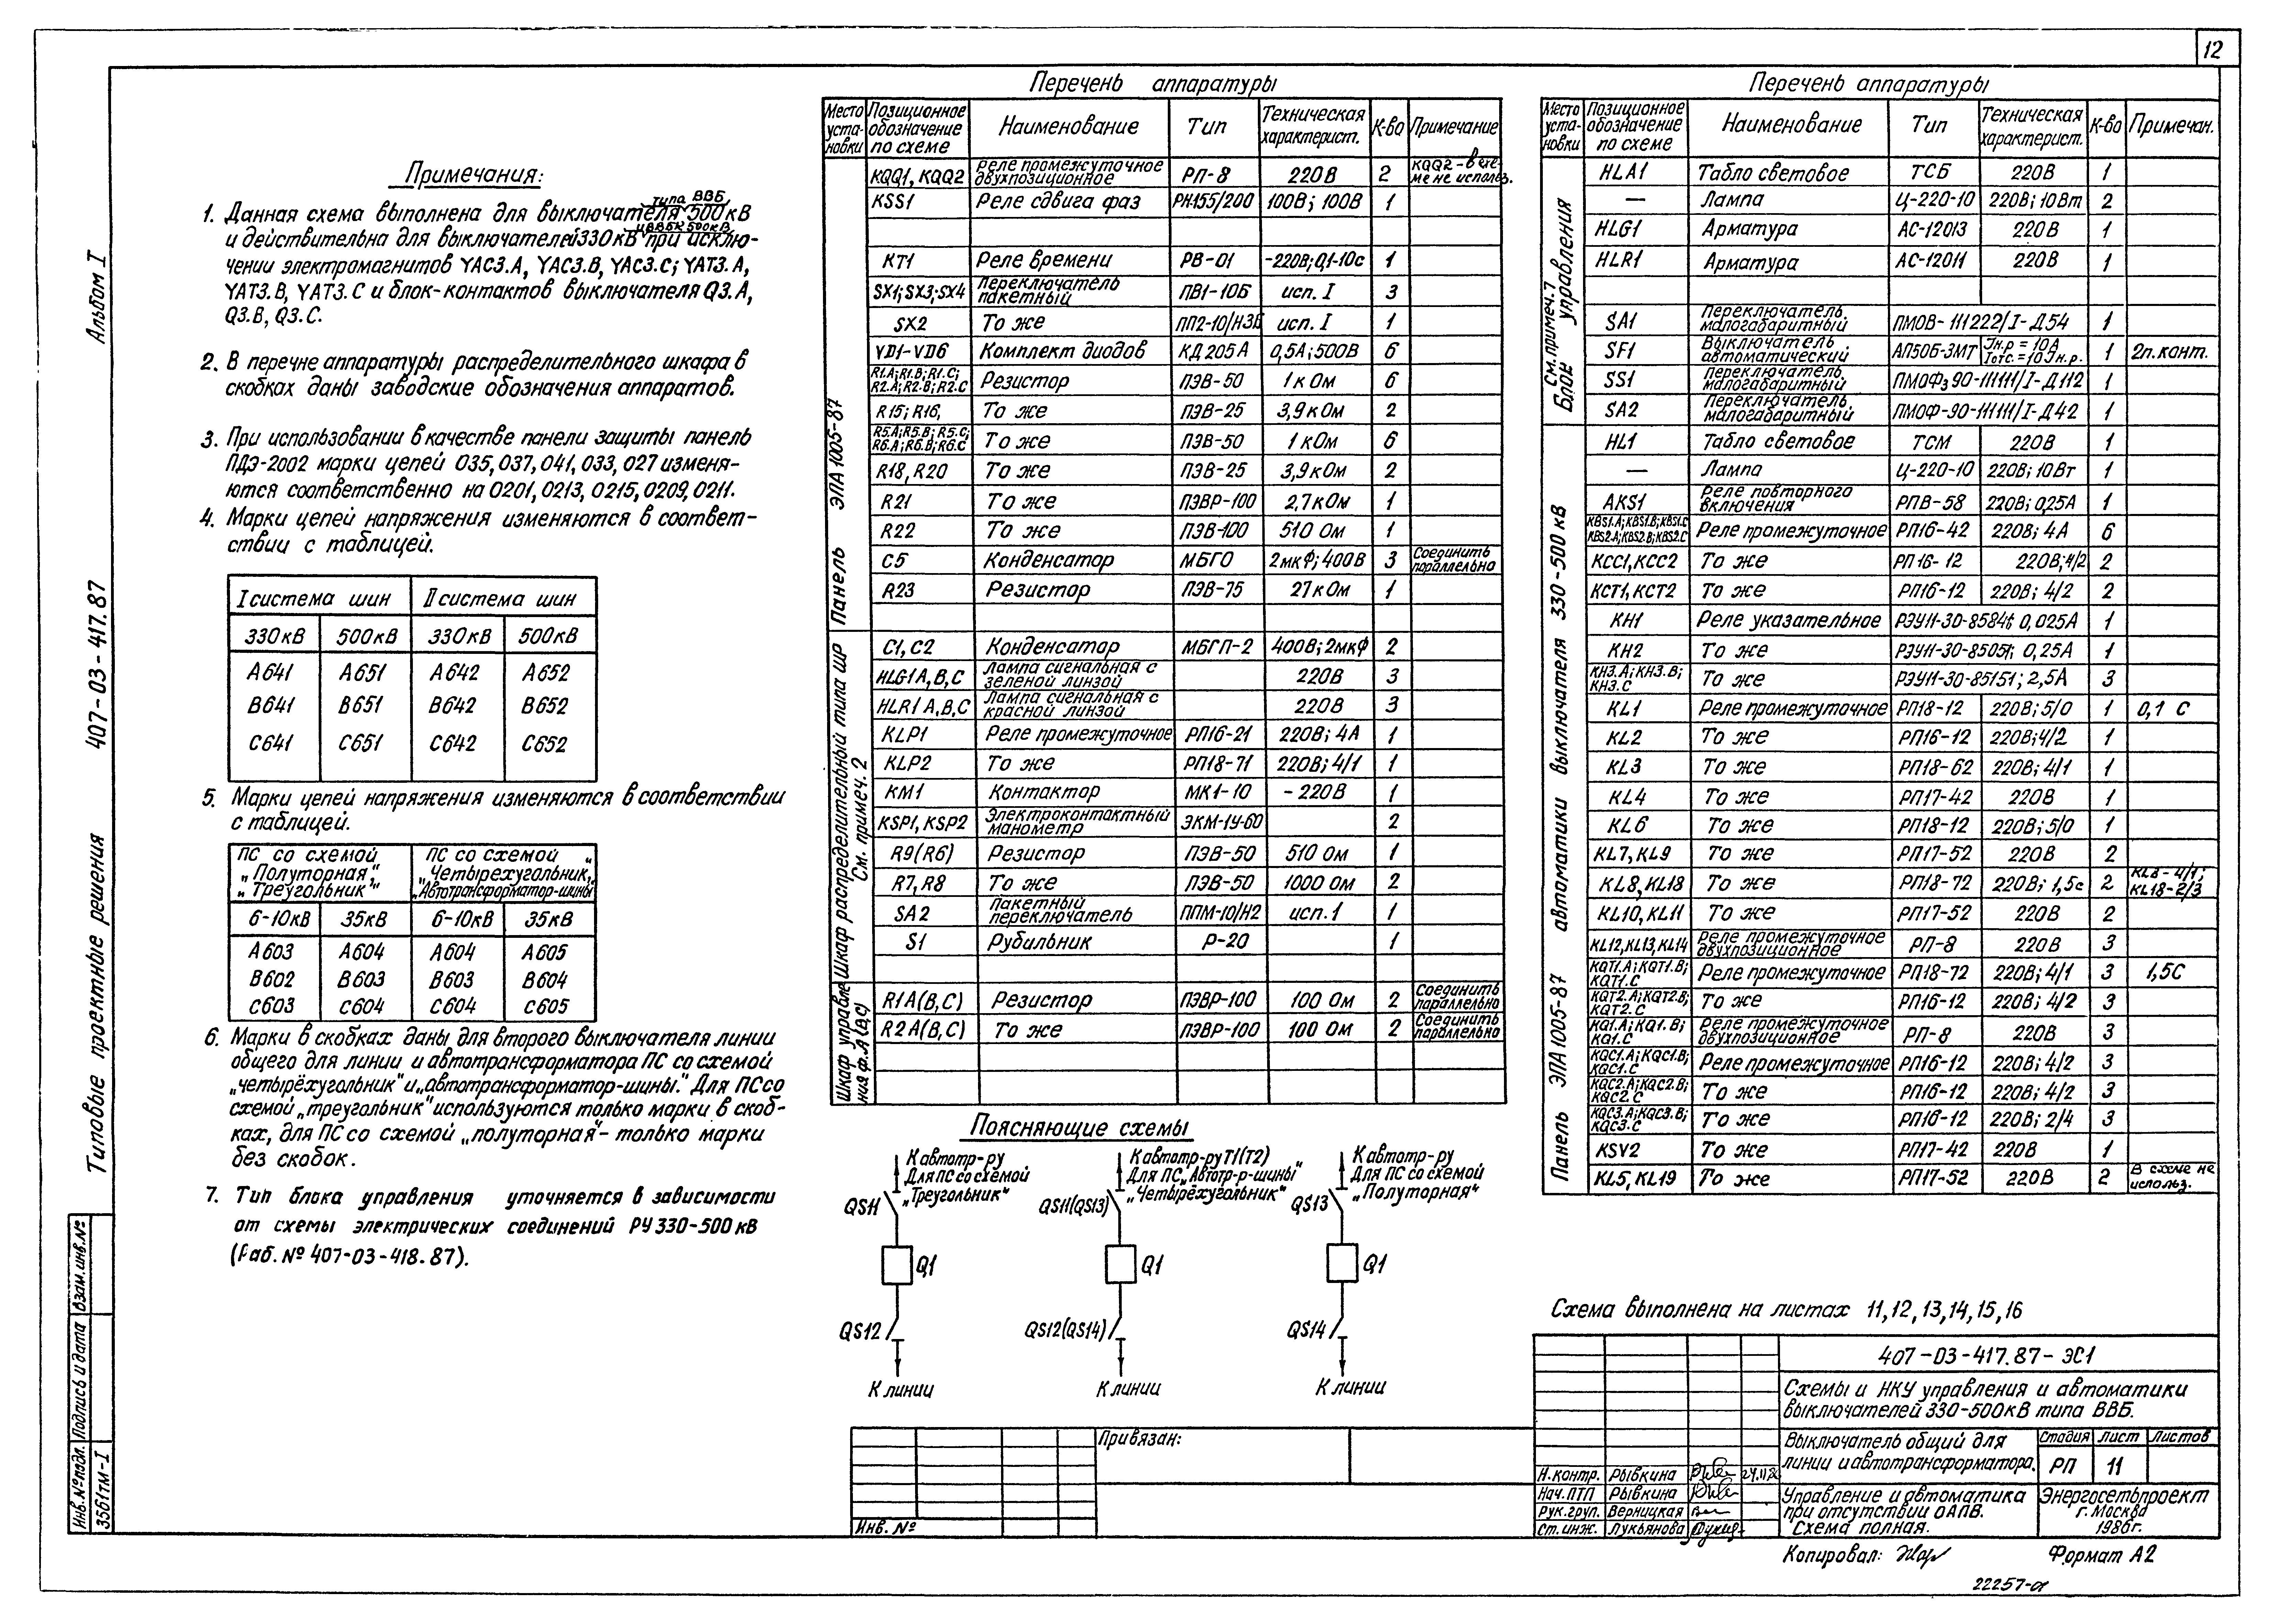 12
Альбом I
407-03-417.87
Типовые проектные решения
Взам.инв.№
Подпись и дата
Инв.№подл.
3561тм-I
Примечания:
1. Данная схема выполнена для выключателя типа ВВБ 500кВ
и действительна для выключателей 330кВ и ВВБК 500кВ при исклю-
чении электромагнитов YAC3.A, YAC3.B, YAC3.C; YAT3.A,
YAT3.B, YAT3.C и блок-контактов выключателя Q3.A,
Q3.B, Q3.C.
2. В перечне аппаратуры распределительного шкафа в
скобках даны заводские обозначения аппаратов.
3. При использовании в качестве панели защиты панель
ПДЭ-2002 марки цепей 035, 037, 041, 033, 027 изменя-
ются соответственно на 0201, 0213, 0215, 0209, 0211.
4. Марки цепей напряжения изменяются в соответ-
ствии с таблицей.
I система шин II система шин
330кВ 500кВ 330кВ 500кВ
A641 A651 A642 A652
B641 B651 B642 B652
C641 C651 C642 C652
5. Марки цепей напряжения изменяются в соответствии
с таблицей.
ПС со схемой „Полуторная", „Треугольник" ПС со схемой „Четырехугольник", „Автотрансформатор-шины"
6-10кВ 35кВ 6-10кВ 35кВ
A603 A604 A604 A605
B602 B603 B603 B604
C603 C604 C604 C605
6. Марки в скобках даны для второго выключателя линии
общего для линии и автотрансформатора ПС со схемой
„четырёхугольник" и „автотрансформатор-шины." Для ПС со
схемой „треугольник" используются только марки в скоб-
ках, для ПС со схемой „полуторная"- только марки
без скобок.
7. Тип блока управления уточняется в зависимости
от схемы электрических соединений РУ 330-500 кВ
(Раб. № 407-03-418.87).
Перечень аппаратуры
Место уста-новки Позиционное обозначение по схеме Наименование Тип Техническая характерист. К-во Примечание
Панель ЭПА 1005-87
KQQ1, KQQ2 Реле промежуточное двухпозиционное РП-8 220В 2 KQQ2-в схе-ме не использ.
KSS1 Реле сдвига фаз РН-155/200 100В; 100В 1
KT1 Реле времени РВ-01 -220В; 0,1-10с 1
SX1; SX3; SX4 Переключатель пакетный ПВ1-10Б исп. I 3
SX2 То же ПП2-10/Н3Б исп. I 1
VD1-VD6 Комплект диодов КД205А 0,5А; 500В 6
R1.A; R1.B; R1.C; R2.A; R2.B; R2.C Резистор ПЭВ-50 1 кОм 6
R15; R16, То же ПЭВ-25 3,9 кОм 2
R5.A; R5.B; R5.C; R6.A; R6.B; R6.C То же ПЭВ-50 1 кОм 6
R18, R20 То же ПЭВ-25 3,9 кОм 2
R21 То же ПЭВР-100 2,7 кОм 1
R22 То же ПЭВ-100 510 Ом 1
C5 Конденсатор МБГО 2мкф; 400В 3 Соединить параллельно
R23 Резистор ПЭВ-75 27 кОм 1
Шкаф распределительный типа ШР См. примеч. 2
C1, C2 Конденсатор МБГП-2 400В; 2мкф 2
HLG1 A, B, C Лампа сигнальная с зеленой линзой 220В 3
HLR1 A, B, C Лампа сигнальная с красной линзой 220В 3
KLP1 Реле промежуточное РП16-21 220В; 4А 1
KLP2 То же РП18-71 220В; 4/1 1
KM1 Контактор МК1-10 -220В 1
KSP1, KSP2 Электроконтактный манометр ЭКМ-1У-60 2
R9(R6) Резистор ПЭВ-50 510 Ом 1
R7, R8 То же ПЭВ-50 1000 Ом 2
SA2 Пакетный переключатель ППМ-10/Н2 исп.1 1
S1 Рубильник Р-20 1
Шкаф управле-ния ф.А(В,С)
R1 A(B,C) Резистор ПЭВР-100 100 Ом 2 Соединить параллельно
R2 A(B,C) То же ПЭВР-100 100 Ом 2 Соединить параллельно
Поясняющие схемы
К автотр-ру
Для ПС со схемой
„Треугольник"
QS11
Q1
QS12
К линии
К автотр-ру Т1(Т2)
Для ПС „Автотр-р-шины"
„Четырёхугольник"
QS11(QS13)
Q1
QS12(QS14)
К линии
К автотр-ру
Для ПС со схемой
„Полуторная"
QS13
Q1
QS14
К линии
Перечень аппаратуры
Место уста-новки Позиционное обозначение по схеме Наименование Тип Техническая характерист. К-во Примечан.
См. примеч.7 Блок управления
HLA1 Табло световое ТСБ 220В 1
— Лампа Ц-220-10 220В; 10Вт 2
HLG1 Арматура АС-12013 220В 1
HLR1 Арматура АС-12011 220В 1
SA1 Переключатель малогабаритный ПМОВ-111222/I-Д54 1
SF1 Выключатель автоматический АП50Б-3МТ Iн.р = 10А Iотс. = 10 Iн.р. 1 2п.конт.
SS1 Переключатель малогабаритный ПМОФз 90-111111/I-Д112 1
SA2 Переключатель малогабаритный ПМОФ-90-111111/I-Д42 1
Панель ЭПА 1005-87 автоматики выключателя 330-500 кВ
HL1 Табло световое ТСМ 220В 1
— Лампа Ц-220-10 220В; 10Вт 1
AKS1 Реле повторного включения РПВ-58 220В; 0,25А 1
KBS1.A; KBS1.B; KBS1.C KBS2.A; KBS2.B; KBS2.C Реле промежуточное РП16-42 220В; 4А 6
KCC1, KCC2 То же РП16-12 220В; 4/2 2
KCT1, KCT2 То же РП16-12 220В; 4/2 2
KH1 Реле указательное РЭУ11-30-85841; 0,025А 1
KH2 То же РЭУ11-30-85051; 0,25А 1
KH3.A; KH3.B; KH3.C То же РЭУ11-30-85151; 2,5А 3
KL1 Реле промежуточное РП18-12 220В; 5/0 1 0,1 С
KL2 То же РП16-12 220В; 4/2 1
KL3 То же РП18-62 220В; 4/1 1
KL4 То же РП17-42 220В 1
KL6 То же РП18-12 220В; 5/0 1
KL7, KL9 То же РП17-52 220В 2
KL8, KL18 То же РП18-72 220В; 1,5с 2 KL8-4/1; KL18-2/3
KL10, KL11 То же РП17-52 220В 2
KL12, KL13, KL14 Реле промежуточное двухпозиционное РП-8 220В 3
KQT1.A; KQT1.B; KQT1.C Реле промежуточное РП18-72 220В; 4/1 3 1,5С
KQT2.A; KQT2.B; KQT2.C То же РП16-12 220В; 4/2 3
KQ1.A; KQ1.B; KQ1.C Реле промежуточное двухпозиционное РП-8 220В 3
KQC1.A; KQC1.B; KQC1.C Реле промежуточное РП16-12 220В; 4/2 3
KQC2.A; KQC2.B; KQC2.C То же РП16-12 220В; 4/2 3
KQC3.A; KQC3.B; KQC3.C То же РП16-12 220В; 2/4 3
KSV2 То же РП17-42 220В 1
KL5, KL19 То же РП17-52 220В 2 В схеме не использ.
Схема выполнена на листах 11, 12, 13, 14, 15, 16
407-03-417.87-ЭС1
Схемы и НКУ управления и автоматики
выключателей 330-500кВ типа ВВБ.
Выключатель общий для
линии и автотрансформатора.
Стадия Лист Листов
РП 11
Н.контр. Рывкина
Нач.ПТП Рывкина
Рук.груп. Верницкая
Ст.инж. Лукьянова
Управление и автоматика
при отсутствии ОАПВ.
Схема полная.
Энергосетьпроект
г.Москва
1986г.
Привязан:
Инв. №
Копировал:
Формат А2
22257-01